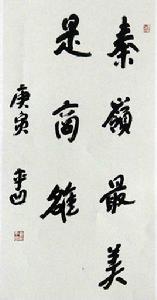 秦嶺最美
是商雒
庚寅 平凹